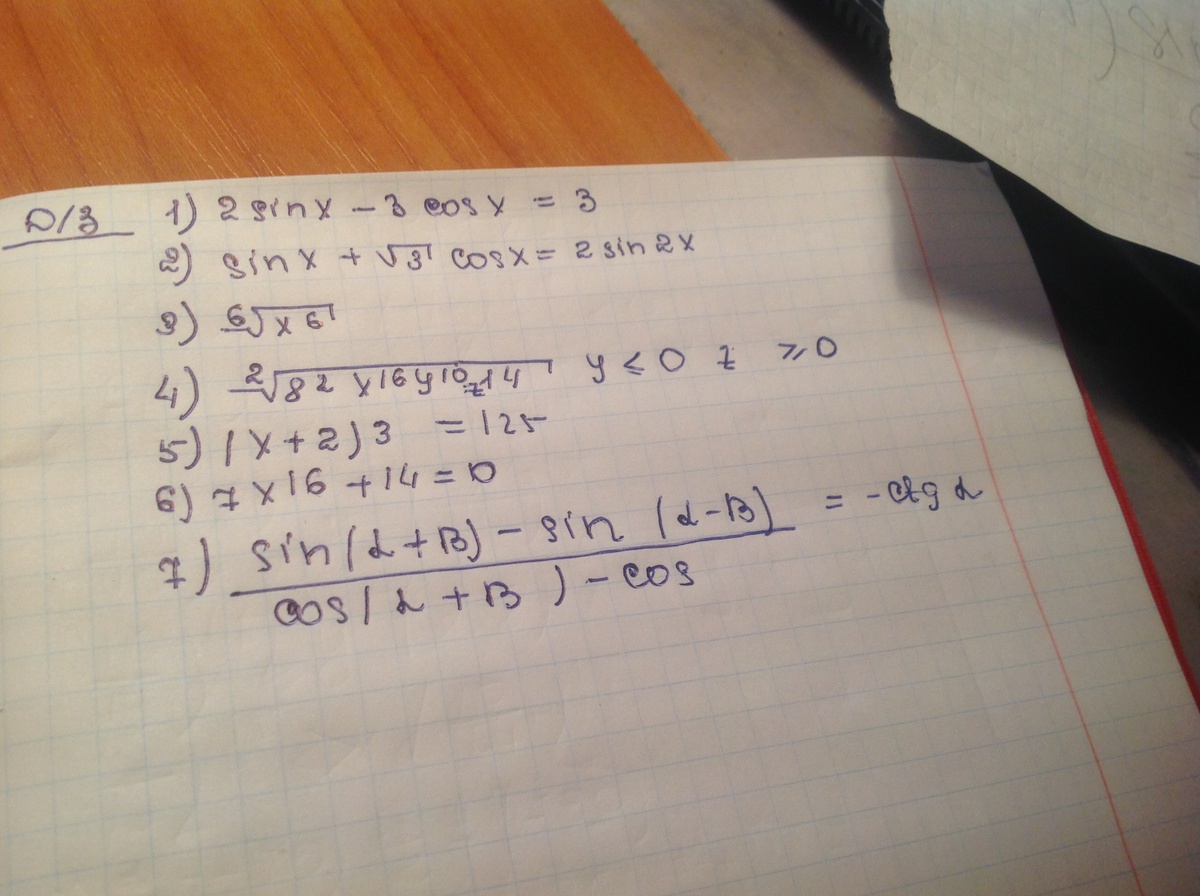 D/З 1) 2 sin x - 3 cos x = 3
2) sin x + √3 cos x = 2 sin 2x
3) 6√x 6
4) 2√8 2 x16 y10 z14 y ≤ 0 z ≥ 0
5) (x + 2) 3 = 125
6) 7 x 16 + 14 = 0
7) sin (α + β) - sin (α - β) = - ctg α
cos (α + β) - cos